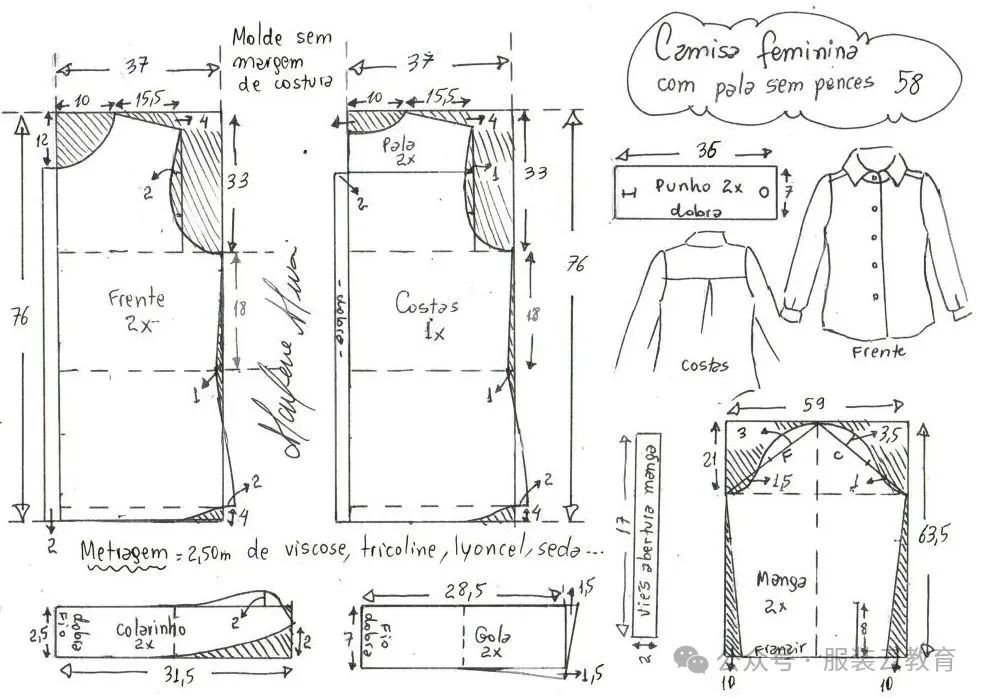 Molde sem
margem
de costura
Camisa feminina
com pala sem pences 58
37
10
15,5
4
12
2
33
76
Frente
2x
18
1
2
4
2
37
10
15,5
4
Pala
2x
1
2
33
76
- dobra -
Costas
1x
18
1
2
4
Marlene Mukai
36
Punho 2x
dobra
7
costas
Frente
Metragem = 2,50m de viscose, tricoline, lyoncel, seda...
2,5
dobra
Fio
Colarinho
2x
2
2
31,5
28,5
7
dobra
Fio
Gola
2x
1,5
1,5
17
viés abertura manga
2
59
21
3
F
C
3,5
1,5
1
63,5
Manga
2x
8
Franzir
10
10
公众号 · 服装云教育